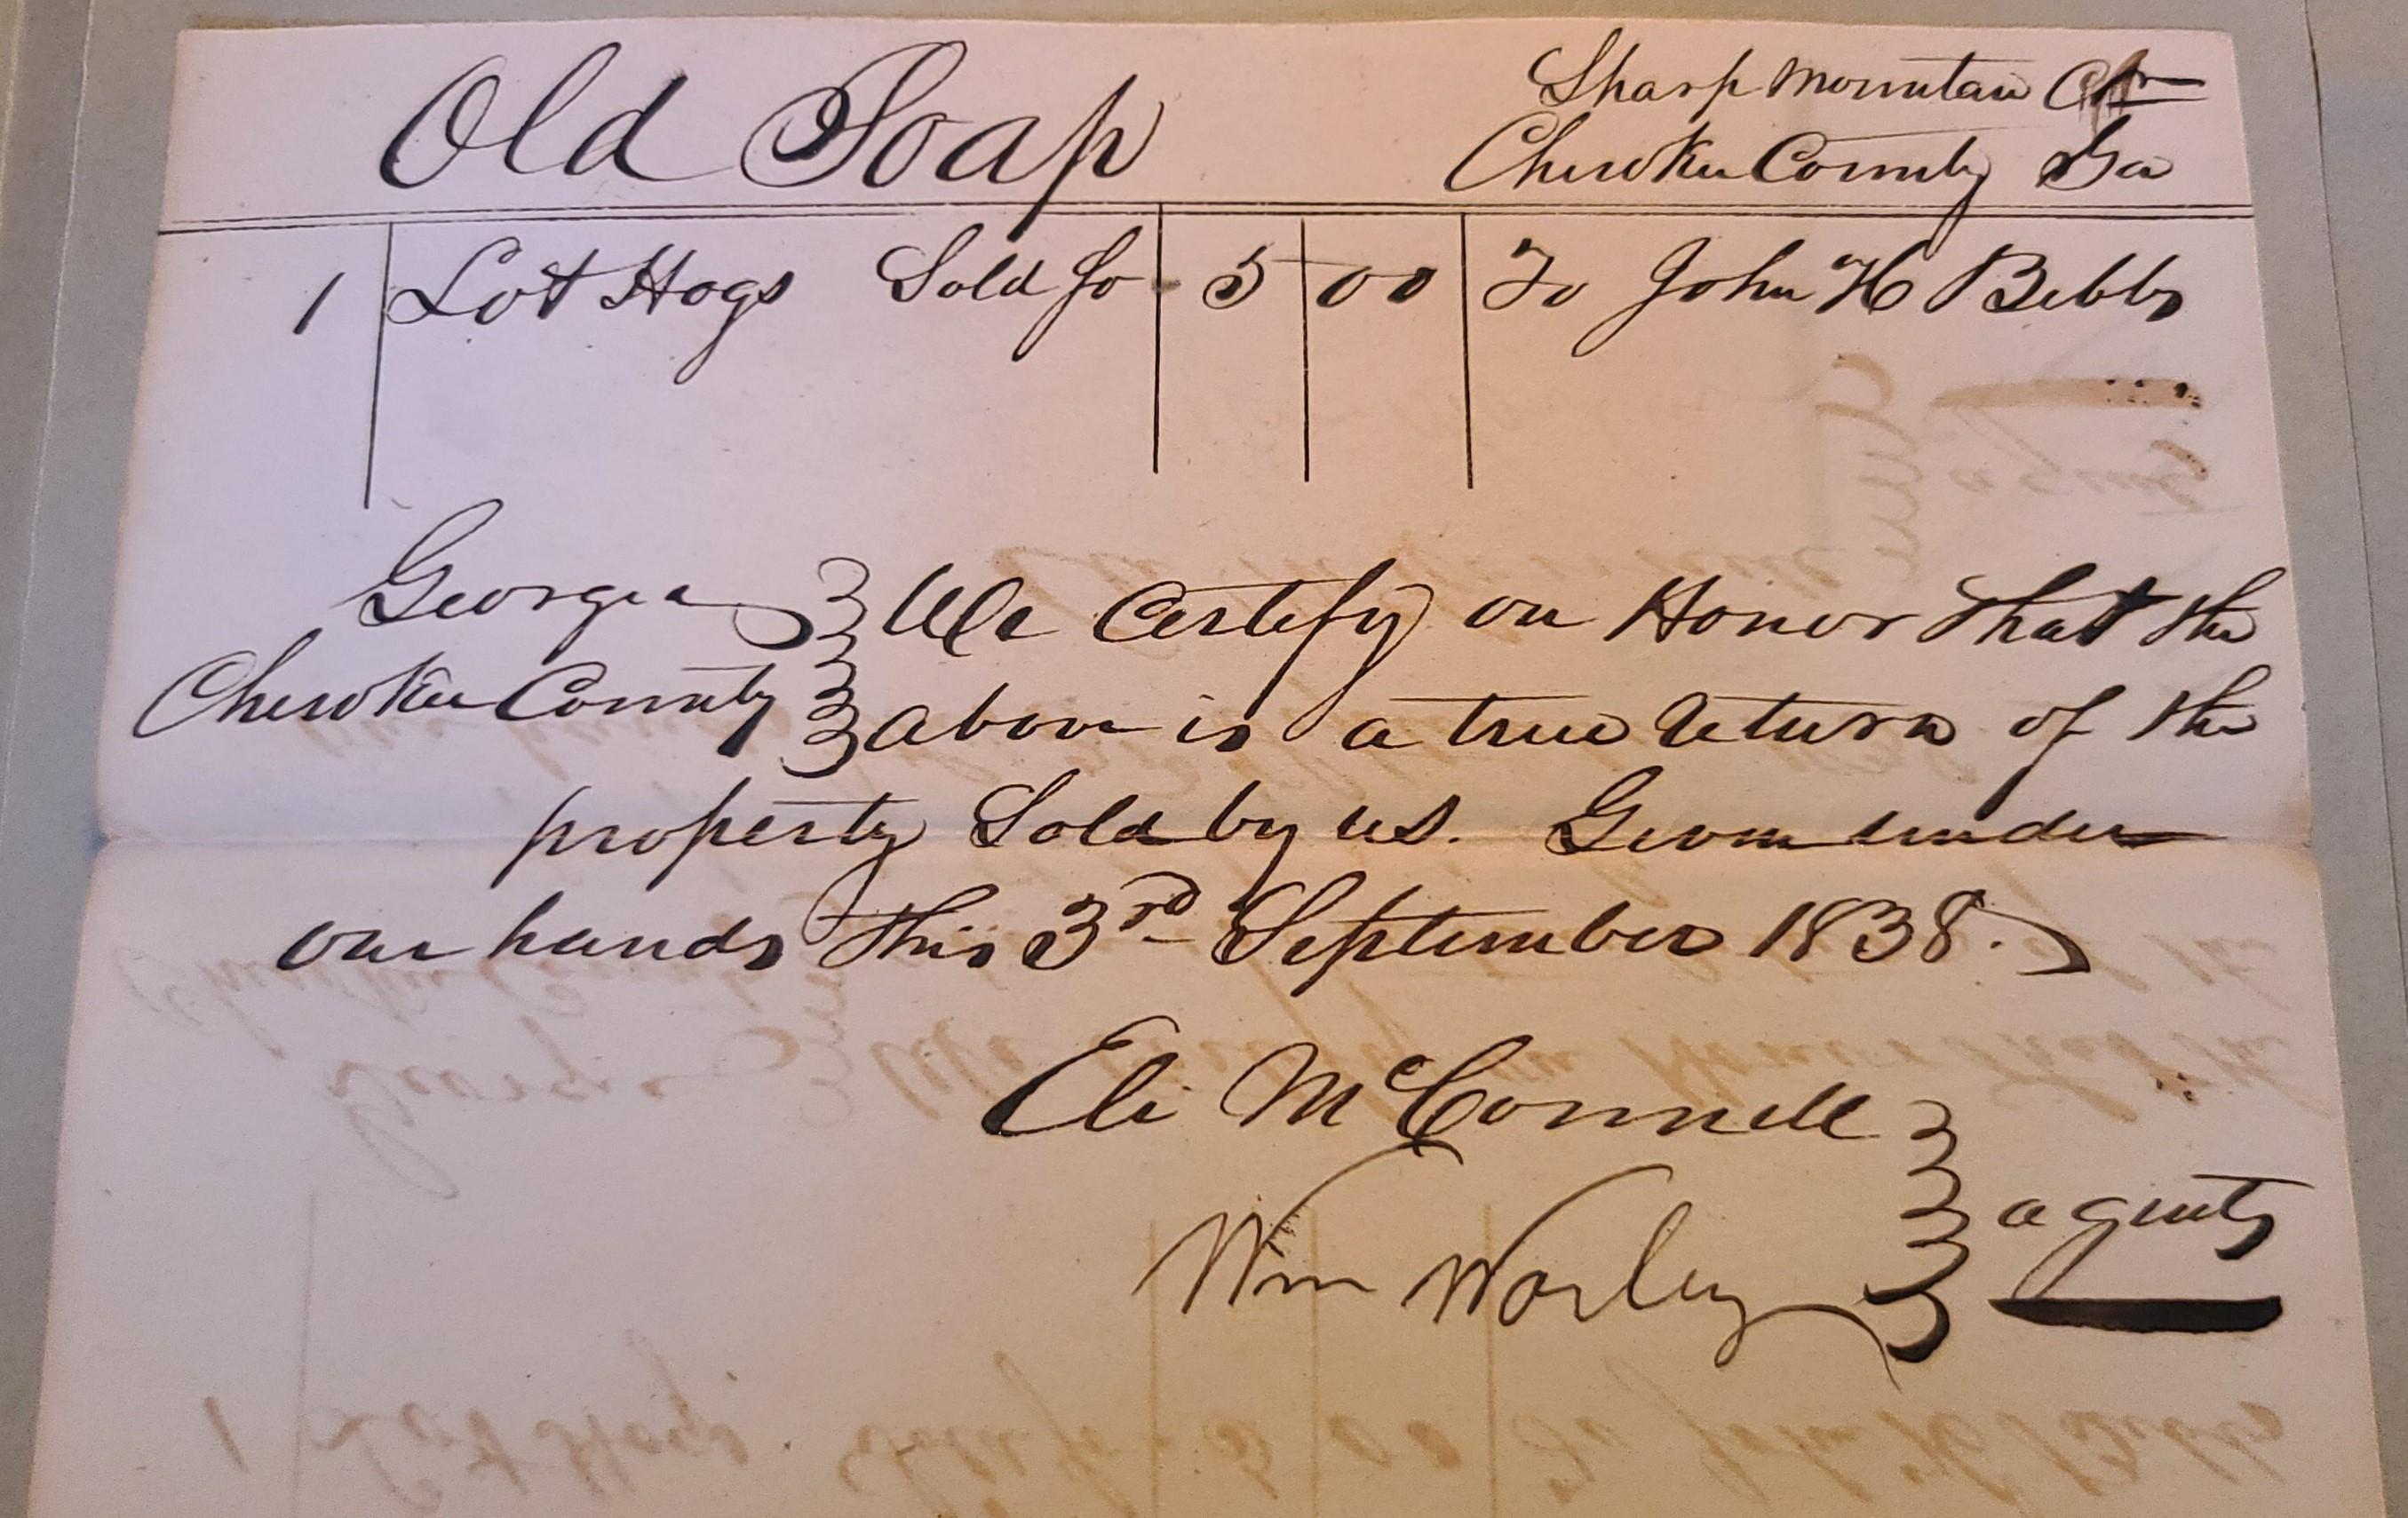 Old Soap
Sharp Mountain
Cherokee County Ga
1 Lot Hogs Sold fo - 5 00 To John H Bebbs
Georgia We Certify on Honor That the
Cherokee County above is a true Return of the
property Sold by us. Given under
our hands This 3rd September 1838.
Eli McConnell
Wm Worley
agents